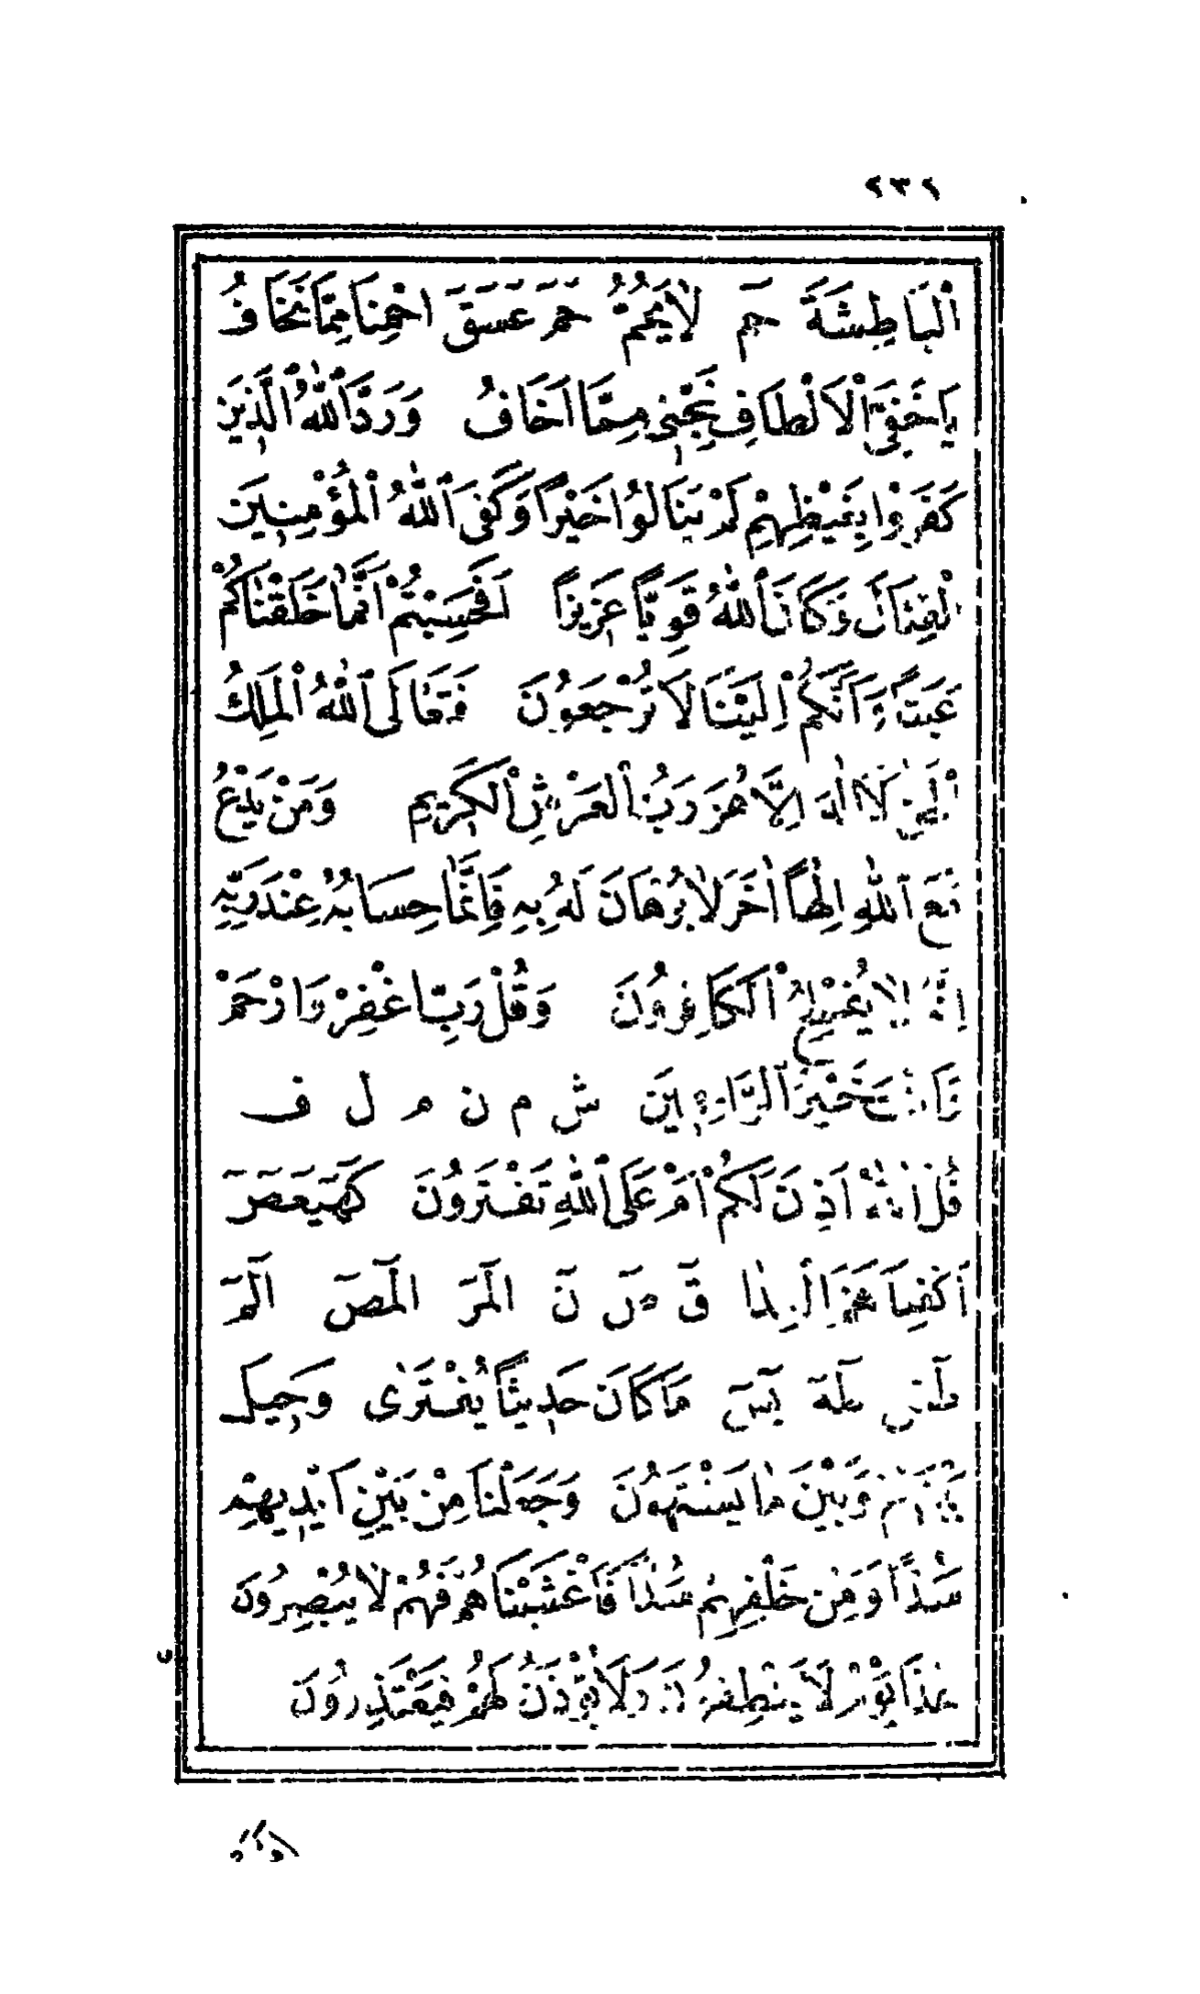 ٢٣٢
اَلْبَاطِشَةَ حٓمٓ لَايَحُمُّ حٓمٓ عٓسٓقٓ اِحْمِنَا مِمَّا نَخَافُ
يَاخَفِيَّ الْاَلْطَافِ نَجِّنِى مِمَّا اَخَافُ وَرَدَّ اللّٰهُ الَّذِينَ
كَفَرُوا بِغَيْظِهِمْ لَمْ يَنَالُوا خَيْرًا وَكَفَى اللّٰهُ الْمُؤْمِنِينَ
الْقِتَالَ وَكَانَ اللّٰهُ قَوِيًّا عَزِيزًا اَفَحَسِبْتُمْ اَنَّمَا خَلَقْنَاكُمْ
عَبَثًا وَاَنَّكُمْ اِلَيْنَا لَا تُرْجَعُونَ فَتَعَالَى اللّٰهُ الْمَلِكُ
الْحَقُّ لَا اِلٰهَ اِلَّا هُوَ رَبُّ الْعَرْشِ الْكَرِيمِ وَمَنْ يَدْعُ
مَعَ اللّٰهِ اِلٰهًا اٰخَرَ لَا بُرْهَانَ لَهُ بِهِ فَاِنَّمَا حِسَابُهُ عِنْدَ رَبِّهِ
اِنَّهُ لَا يُفْلِحُ الْكَافِرُونَ وَقُلْ رَبِّ اغْفِرْ وَارْحَمْ
وَاَنْتَ خَيْرُ الرَّاحِمِينَ ش م ن م ل ف
قُلْ اٰللّٰهُ اَذِنَ لَكُمْ اَمْ عَلَى اللّٰهِ تَفْتَرُونَ كٓهٰيٰعٓصٓ
اَكْفِيَا قٓ نٓ الٓمٓرٰ الٓمٓصٓ الٓمٓ
طٰسٓ طٰهٰ يٰسٓ مَا كَانَ حَدِيثًا يُفْتَرٰى وَحِيلَ
بَيْنَهُمْ وَبَيْنَ مَا يَشْتَهُونَ وَجَعَلْنَا مِنْ بَيْنِ اَيْدِيهِمْ
سَدًّا وَمِنْ خَلْفِهِمْ سَدًّا فَاَغْشَيْنَاهُمْ فَهُمْ لَا يُبْصِرُونَ
هٰذَا يَوْمُ لَا يَنْطِقُونَ وَلَا يُؤْذَنُ لَهُمْ فَيَعْتَذِرُونَ